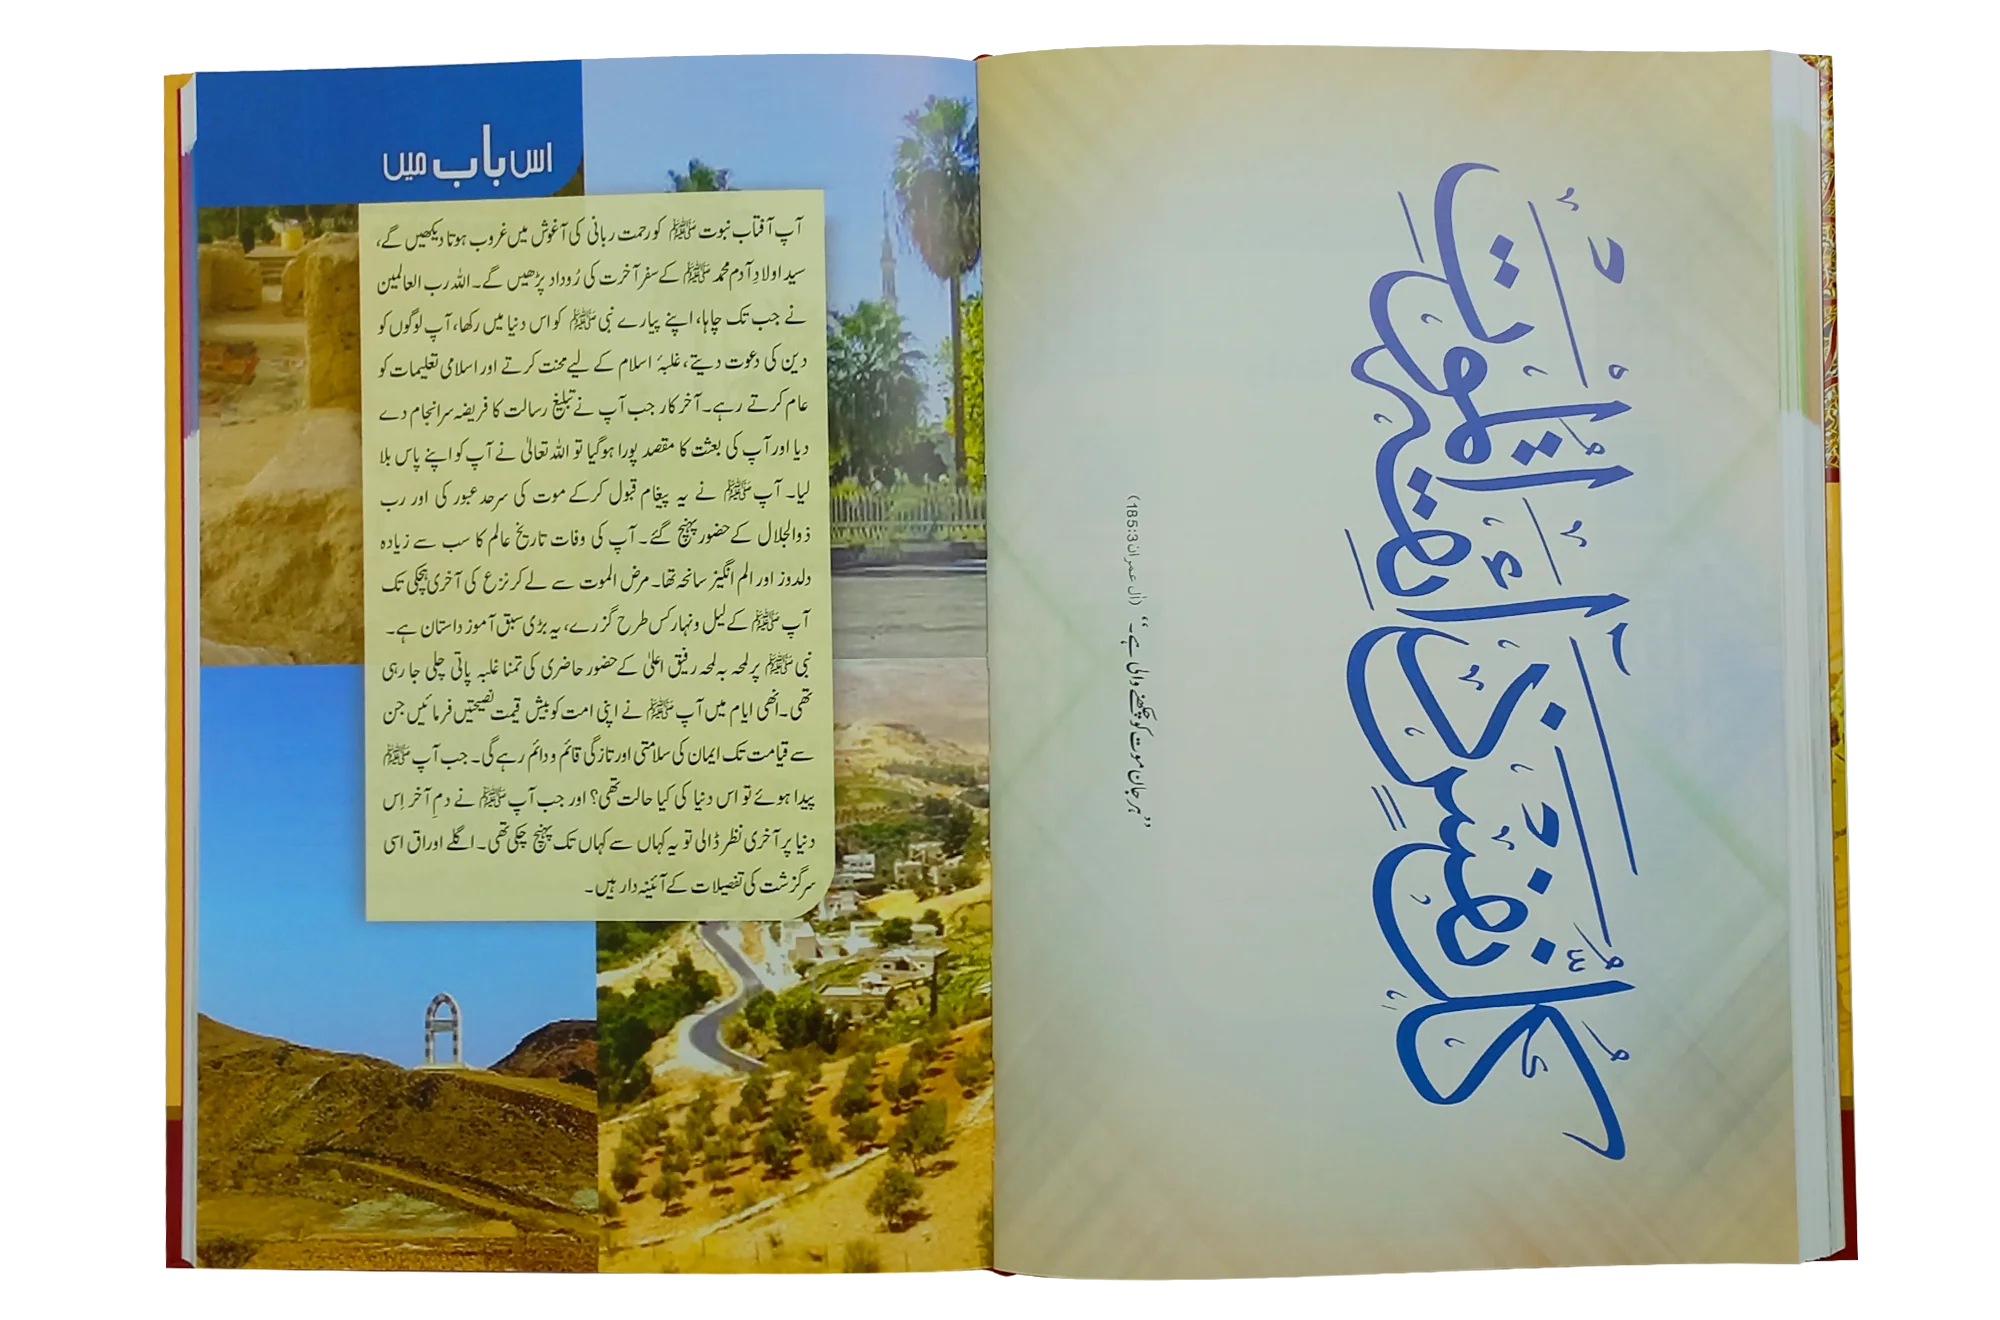 اس باب میں
آپ آفتاب نبوت ﷺ کو رحمت ربانی کی آغوش میں غروب ہوتا دیکھیں گے،
سید اولادِ آدم محمد ﷺ کے سفر آخرت کی رُوداد پڑھیں گے۔ اللہ رب العالمین
نے جب تک چاہا، اپنے پیارے نبی ﷺ کو اس دنیا میں رکھا، آپ لوگوں کو
دین کی دعوت دیتے، غلبۂ اسلام کے لیے محنت کرتے اور اسلامی تعلیمات کو
عام کرتے رہے۔ آخر کار جب آپ نے تبلیغ رسالت کا فریضہ سرانجام دے
دیا اور آپ کی بعثت کا مقصد پورا ہوگیا تو اللہ تعالیٰ نے آپ کو اپنے پاس بلا
لیا۔ آپ ﷺ نے یہ پیغام قبول کرکے موت کی سرحد عبور کی اور رب
ذوالجلال کے حضور پہنچ گئے۔ آپ کی وفات تاریخ عالم کا سب سے زیادہ
دلدوز اور الم انگیز سانحہ تھا۔ مرض الموت سے لے کر نزع کی آخری ہچکی تک
آپ ﷺ کے لیل و نہار کس طرح گزرے، یہ بڑی سبق آموز داستان ہے۔
نبی ﷺ پر لمحہ بہ لمحہ رفیق اعلیٰ کے حضور حاضری کی تمنا غلبہ پاتی چلی جا رہی
تھی۔ انھی ایام میں آپ ﷺ نے اپنی امت کو بیش قیمت نصیحتیں فرمائیں جن
سے قیامت تک ایمان کی سلامتی اور تازگی قائم و دائم رہے گی۔ جب آپ ﷺ
پیدا ہوئے تو اس دنیا کی کیا حالت تھی؟ اور جب آپ ﷺ نے دمِ آخر اِس
دنیا پر آخری نظر ڈالی تو یہ کہاں سے کہاں تک پہنچ چکی تھی۔ اگلے اوراق اسی
سرگزشت کی تفصیلات کے آئینہ دار ہیں۔
كُلُّ نَفْسٍ ذَآئِقَةُ الْمَوْتِ
”ہر جان موت کو چکھنے والی ہے۔“ (اٰل عمران 185:3)